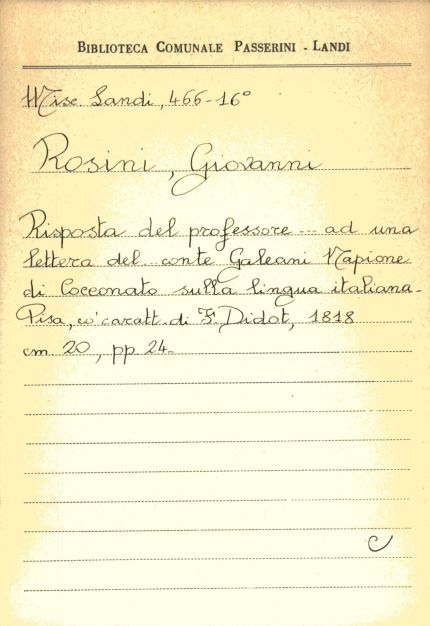 BIBLIOTECA COMUNALE PASSERINI - LANDI
Misc. Landi, 466-16°
Rosini, Giovanni
Risposta del professore ... ad una
lettera del conte Galeani Napione
di Cocconato sulla lingua italiana-
Pisa, co' caratt. di F. Didot, 1818
cm. 20, pp. 24-
C